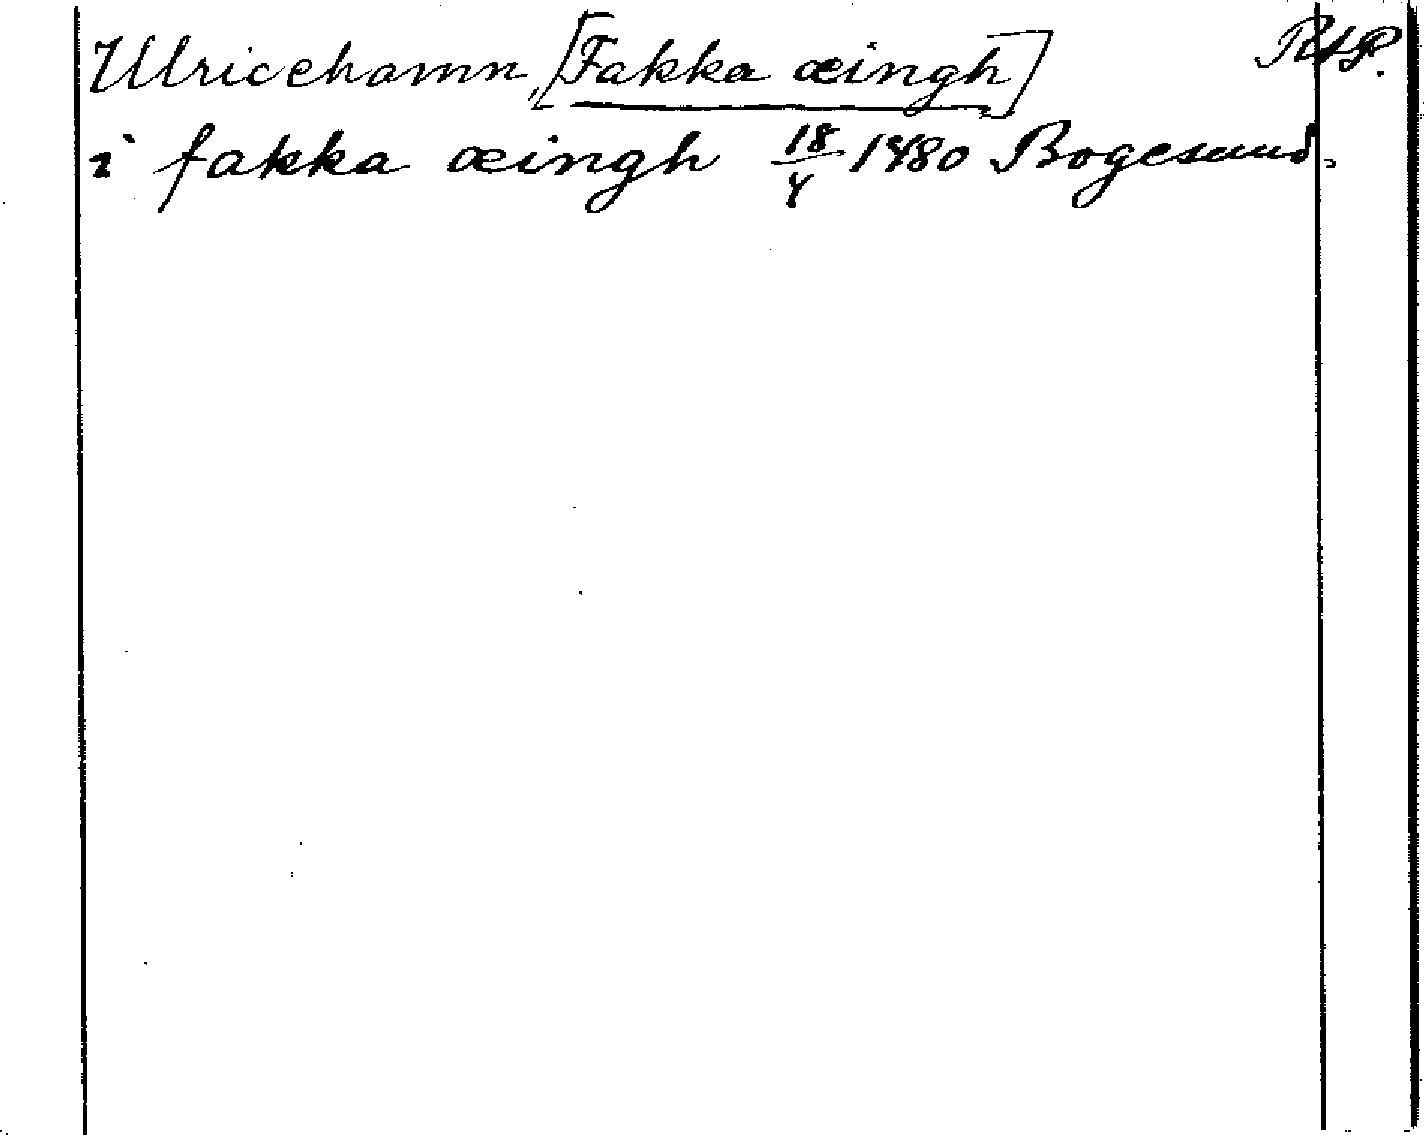 Ulricehamn, [Fakka æingh] RAP.
i fakka æingh 18/4 1480 Bogesund.